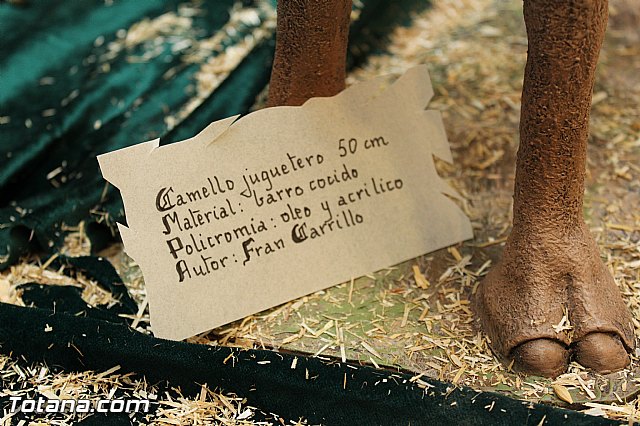 Camello juguetero 50 cm
Material: barro cocido
Policromía: oleo y acrilico
Autor: Fran Carrillo
Totana.com